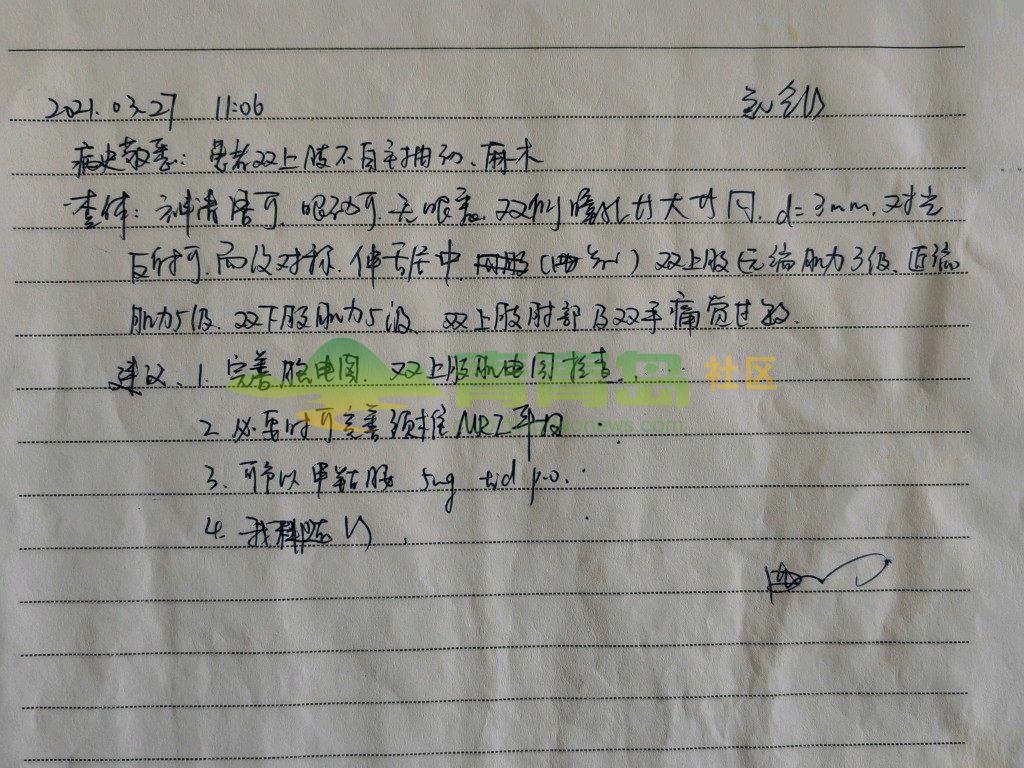 2021.03.27 11:06
病史敬悉:患者双上肢不自主抽动、麻木
查体:神清语可,眼动可,无眼震,双侧瞳孔等大等圆,d=3mm,对光
反射可,面纹对称,伸舌居中 双上肢远端肌力3级,近端
肌力5级,双下肢肌力5级,双上肢肘部及双手痛觉过敏.
建议、1. 完善脑电图、双上肢肌电图检查.
2. 必要时可完善颈椎MRI平扫
3. 可予以甲钴胺 5mg tid p.o.
4. 我科随访.
青青岛 社区